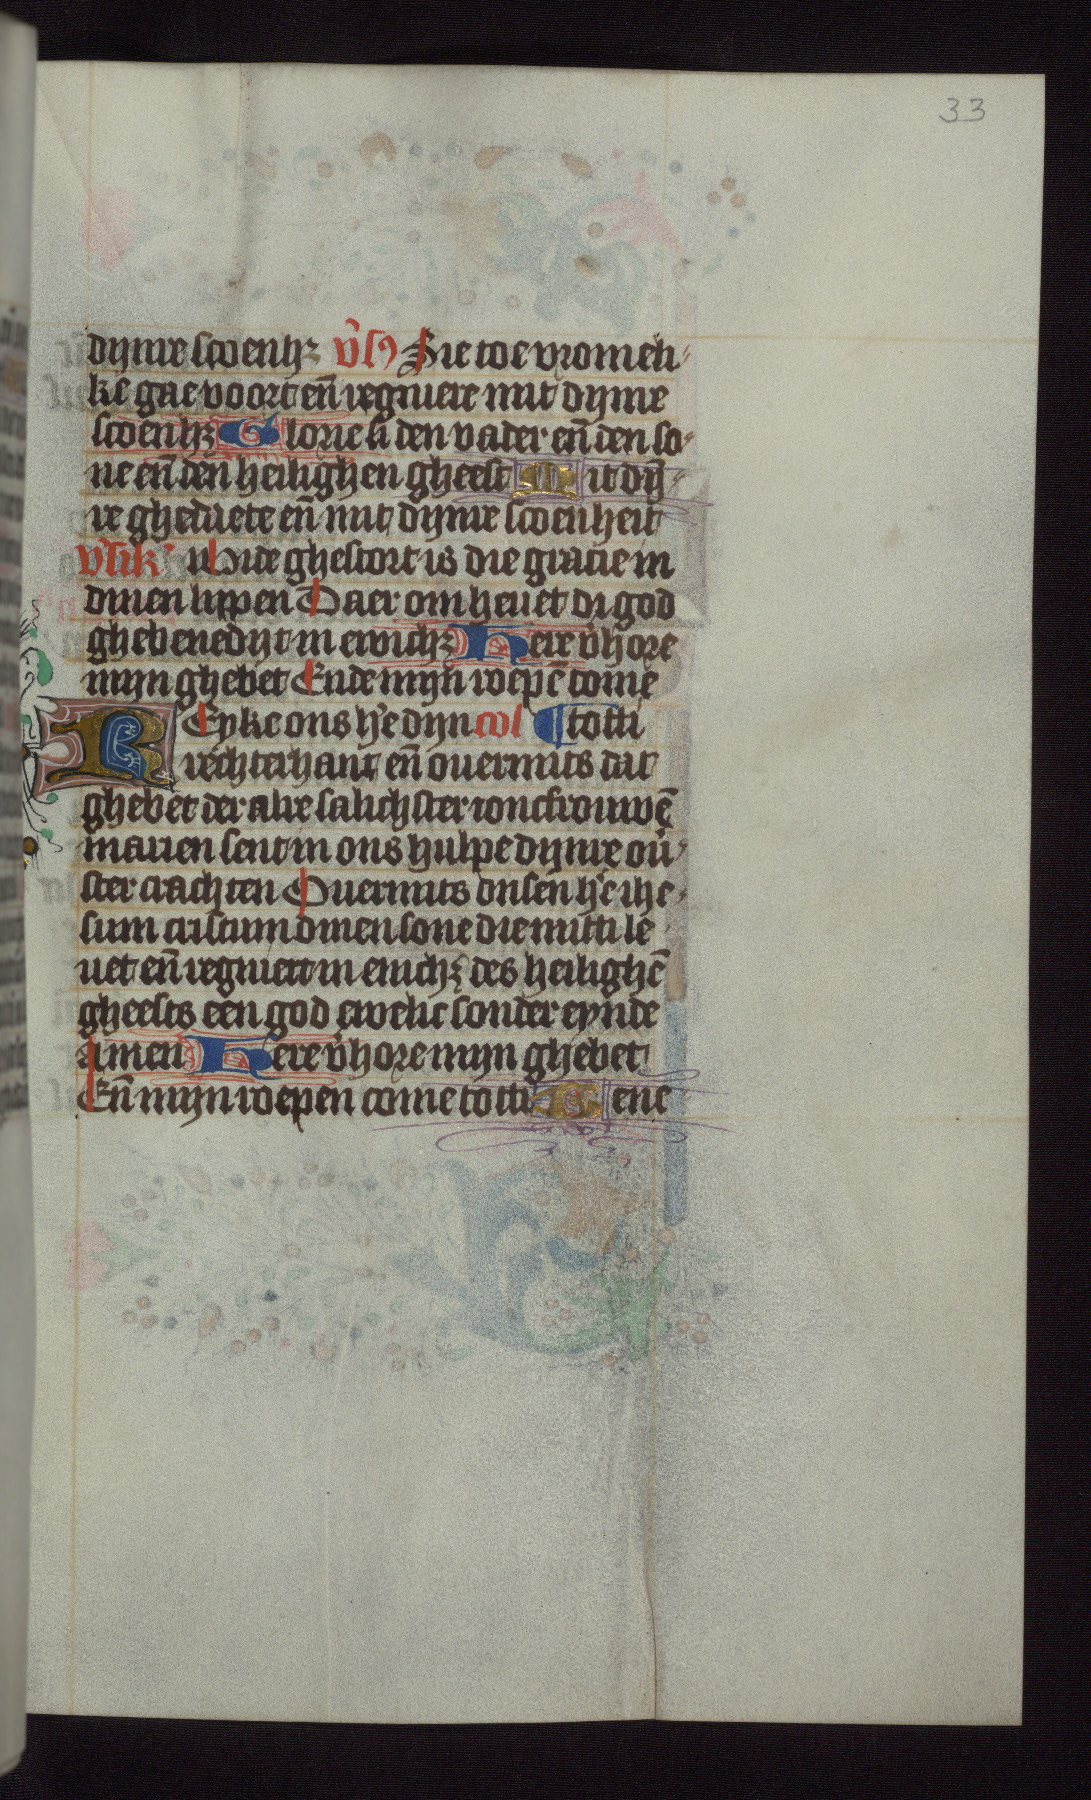 33
dijnre scoenhz vs9 Sie toe vromeli
ke gae voort en̄ regniere mit dijnre
scoenhz Glorie si den vader en̄ den so
ne en̄ den heilighen gheest Mit dij
re ghedaete en̄ mit dijnre scoenheit
vsik' Wtde ghestort is die gracie in
dinen lippen Daer om hevet di god
ghebenedijt in ewichz Here v̄hore
mijn ghebet Ende mijn roepē come
REyke ons h'e dijn col ¶ totti
rechterhant en̄ overmits dat
ghebet der alre salichster ioncfrouwē
marien sent in ons hulpe dijnre ov̄
ster crachten Overmits onsen h'e ihe
sum cristum dinen sone die mitti le
vet en̄ regniert in enichz des heilighē
gheests een god ewelic sonder eynde
Amen Here v̄hore mijn ghebet
En̄ mijn roepen come totti Gene